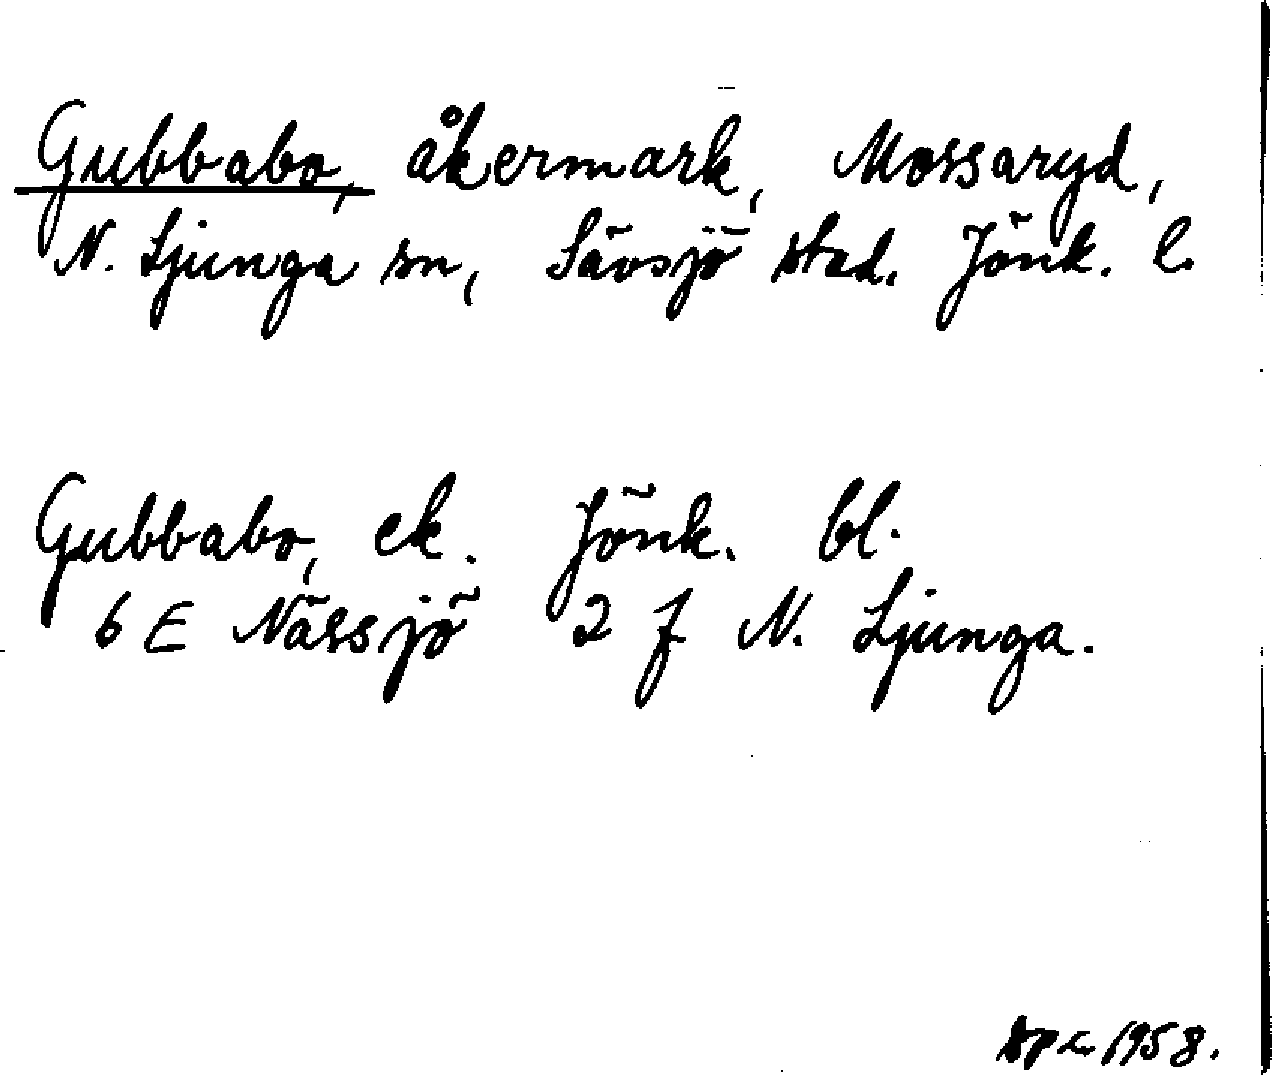 Gubbabo, åkermark, Mossaryd,
N. Ljunga sn, Sävsjö stad. Jönk. l.
Gubbabo, ek. Jönk. bl.
6 E Nässjö 2 f N. Ljunga.
1958.